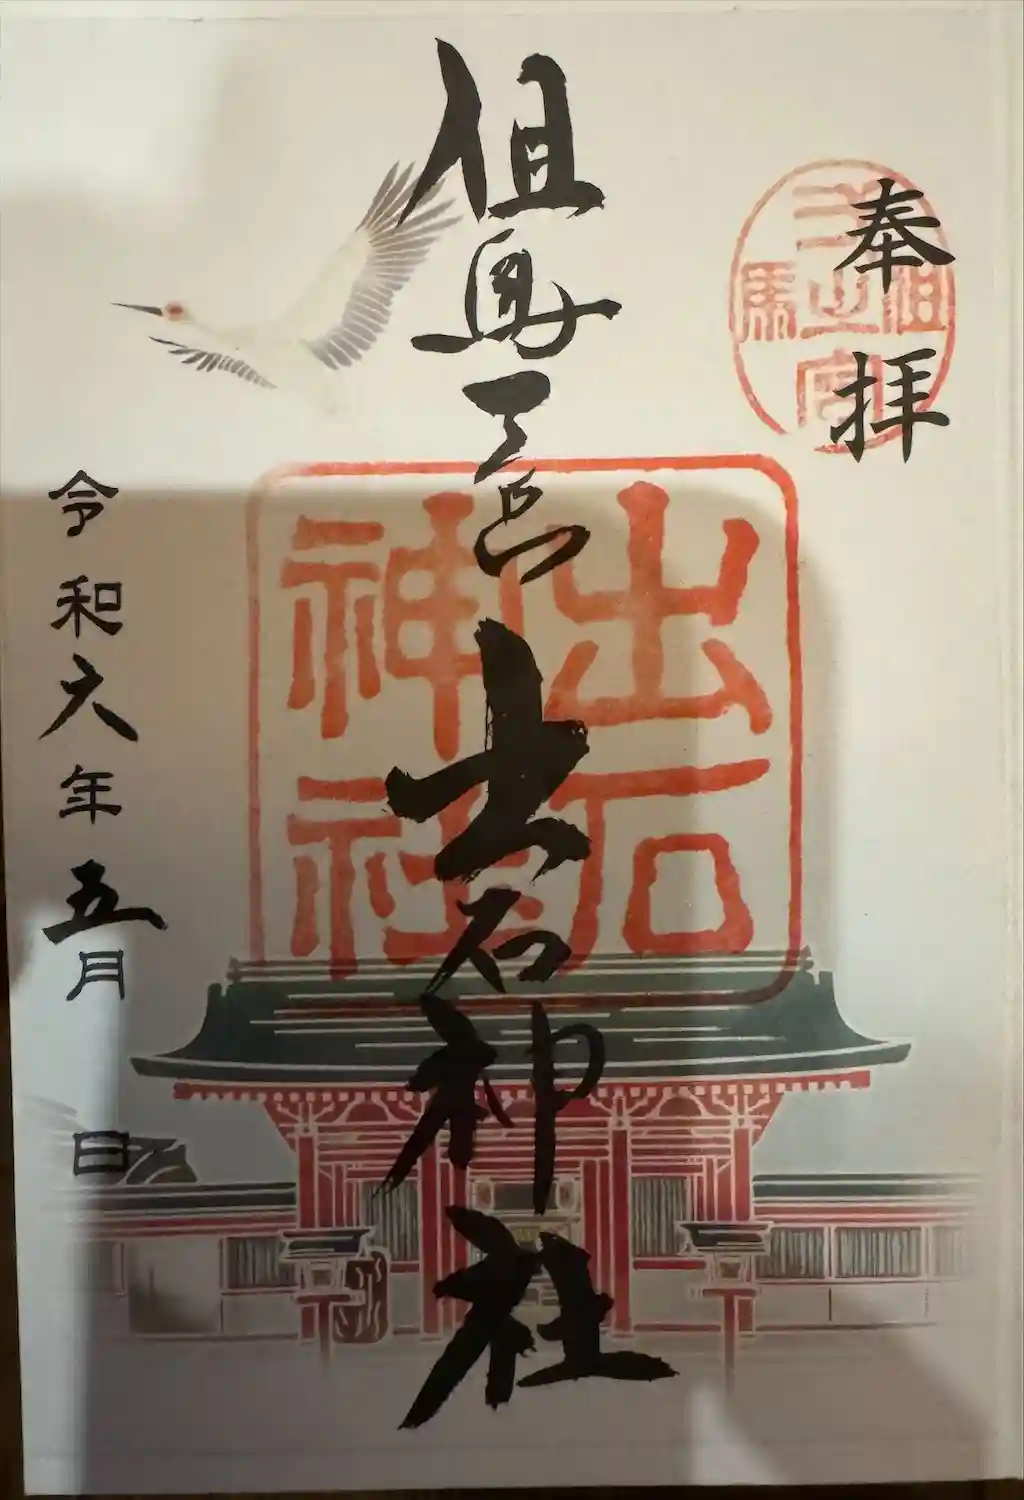 奉拝
但馬一宮
出石神社
令和六年五月 日
出石
神社